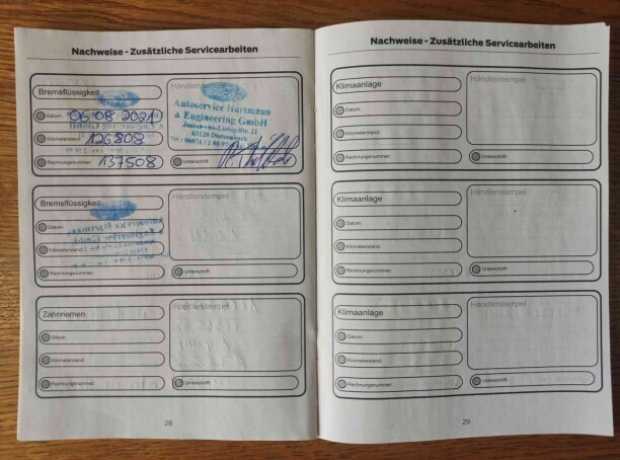 Nachweise - Zusätzliche Servicearbeiten
Bremsflüssigkeit
Händlerstempel
Datum
06.08.2021
Kilometerstand
126808
Rechnungsnummer
137508
Autoservice Hartmann
& Engineering GmbH
Unterschrift
Bremsflüssigkeit
Händlerstempel
Datum
Kilometerstand
Rechnungsnummer
Unterschrift
Zahnriemen
Händlerstempel
Datum
Kilometerstand
Rechnungsnummer
Unterschrift
28
Nachweise - Zusätzliche Servicearbeiten
Klimaanlage
Händlerstempel
Datum
Kilometerstand
Rechnungsnummer
Unterschrift
Klimaanlage
Händlerstempel
Datum
Kilometerstand
Rechnungsnummer
Unterschrift
Klimaanlage
Händlerstempel
Datum
Kilometerstand
Rechnungsnummer
Unterschrift
29